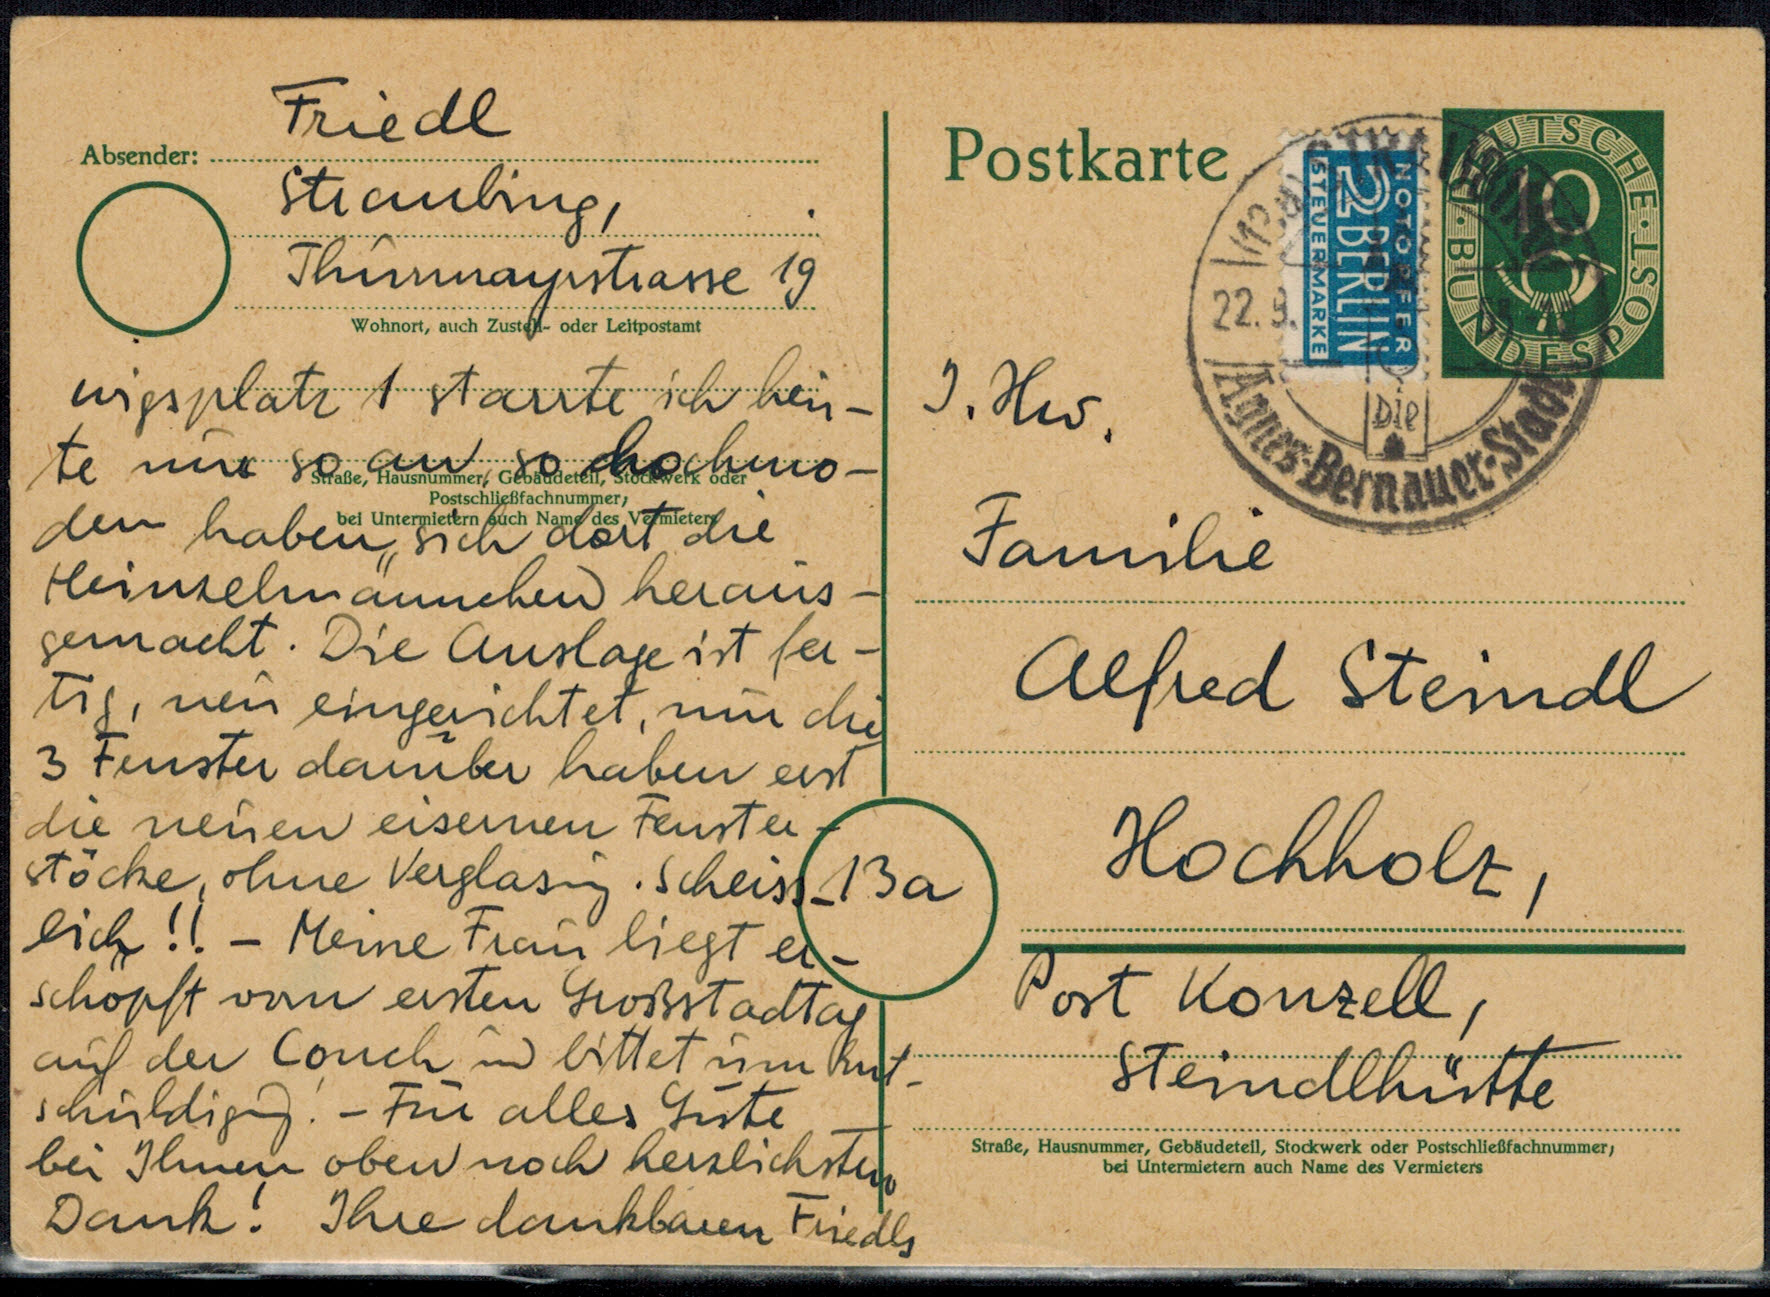 Friedl
Absender:
Straubing,
Thürmayrstrasse 19
Wohnort, auch Zustell- oder Leitpostamt
wigsplatz 1 starrte ich heu-
te nur so an so hochmo-
dern haben sich dort die
Straße, Hausnummer, Gebäudeteil, Stockwerk oder
Postschließfachnummer,
bei Untermietern auch Name des Vermieters
Heinzelmännchen heraus-
gemacht. Die Auslage ist fer-
tig, neu eingerichtet, nur die
3 Fenster darüber haben erst
die neuen eisernen Fenster-
stöcke, ohne Verglasung. Scheiss-
lich!! – Meine Frau liegt er-
schöpft vom ersten Großstadttag
auf der Couch u bittet um Ent-
schuldigung! – Für alles Gute
bei Ihnen oben noch herzlichsten
Dank! Ihre dankbaren Friedls
Postkarte
NOTOPFER
2 BERLIN
STEUERMARKE
DEUTSCHE·BUNDESPOST·
10
STRAUBING
22. 9.
Die
Agnes-Bernauer-Stadt
Familie
Alfred Steindl
13a
Hochholz,
Post Konzell,
Steindlhütte
Straße, Hausnummer, Gebäudeteil, Stockwerk oder Postschließfachnummer,
bei Untermietern auch Name des Vermieters